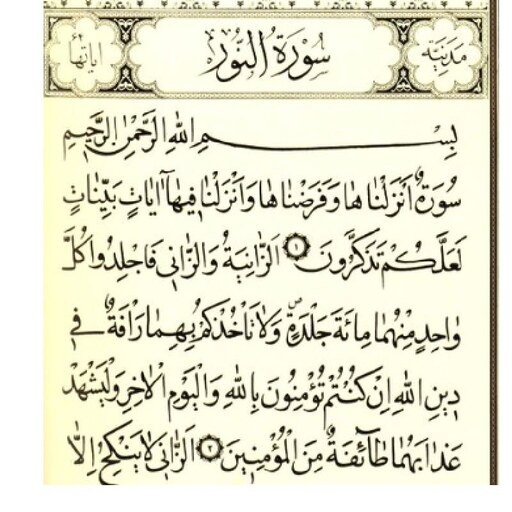 مدنية سورة النور اياتها ٦٤
بِسْمِ اللهِ الرَّحْمٰنِ الرَّحيمِ
سُورَةٌ اَنْزَلْنَاهَا وَفَرَضْنَاهَا وَاَنْزَلْنَا فيهَآ اٰيَاتٍ بَيِّنَاتٍ
لَعَلَّكُمْ تَذَكَّرُونَ ١ اَلزَّانِيَةُ وَالزَّاني فَاجْلِدُوا كُلَّ
وَاحِدٍ مِنْهُمَا مِائَةَ جَلْدَةٍ وَلَا تَأْخُذْكُمْ بِهِمَا رَأْفَةٌ في
دينِ اللهِ اِنْ كُنْتُمْ تُؤْمِنُونَ بِاللهِ وَالْيَوْمِ الْاٰخِرِ وَلْيَشْهَدْ
عَذَابَهُمَا طَآئِفَةٌ مِنَ الْمُؤْمِنينَ ٢ اَلزَّاني لَا يَنْكِحُ اِلَّا